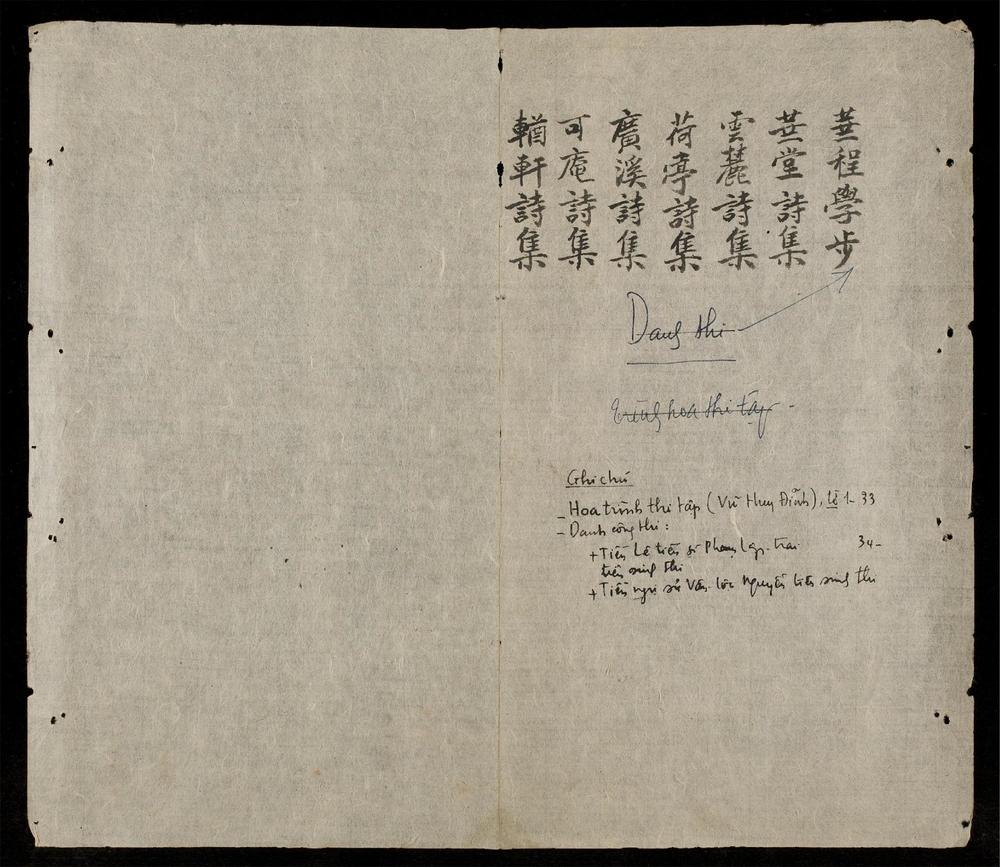 華程學步
華堂詩集
雲麓詩集
荷亭詩集
廣溪詩集
可庵詩集
輶軒詩集
Danh thi
Trình hoa thi tập -
Ghi chú
- Hoa trình thi tập (Vũ Huy Đĩnh), tờ 1-33
- Danh công thi:
+ Tiền Lê tiến sĩ Phạm Lập trai 34-
tiên sinh thi
+ Tiền ngự sử Vân lộc Nguyễn tiên sinh thi